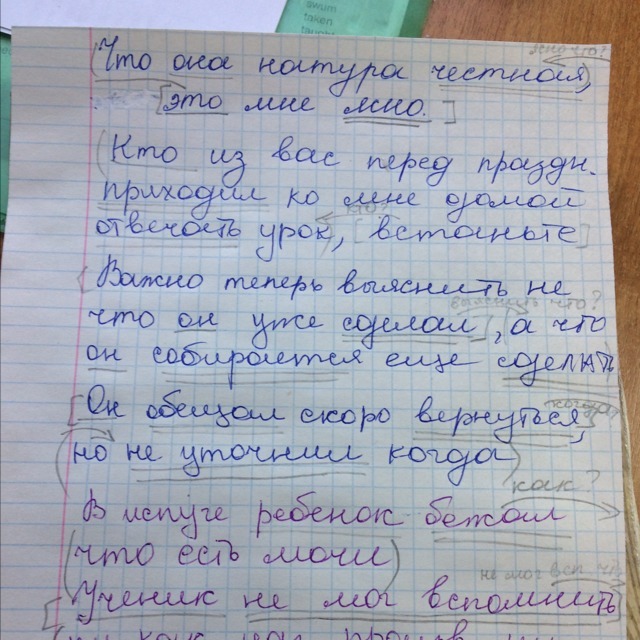 swum
taken
taught
ясно что?
Что она натура честная,
это мне ясно.
Кто из вас перед праздн.
приходил ко мне домой
кто?
отвечать урок, встаньте
Важно теперь выяснить не
выяснить что?
что он уже сделал, а что
он собирается еще сделать
когда?
Он обещал скоро вернуться,
но не уточнил когда
как?
В испуге ребенок бежал
что есть мочи
не мог всп. что
Ученик не мог вспомнить
ни как